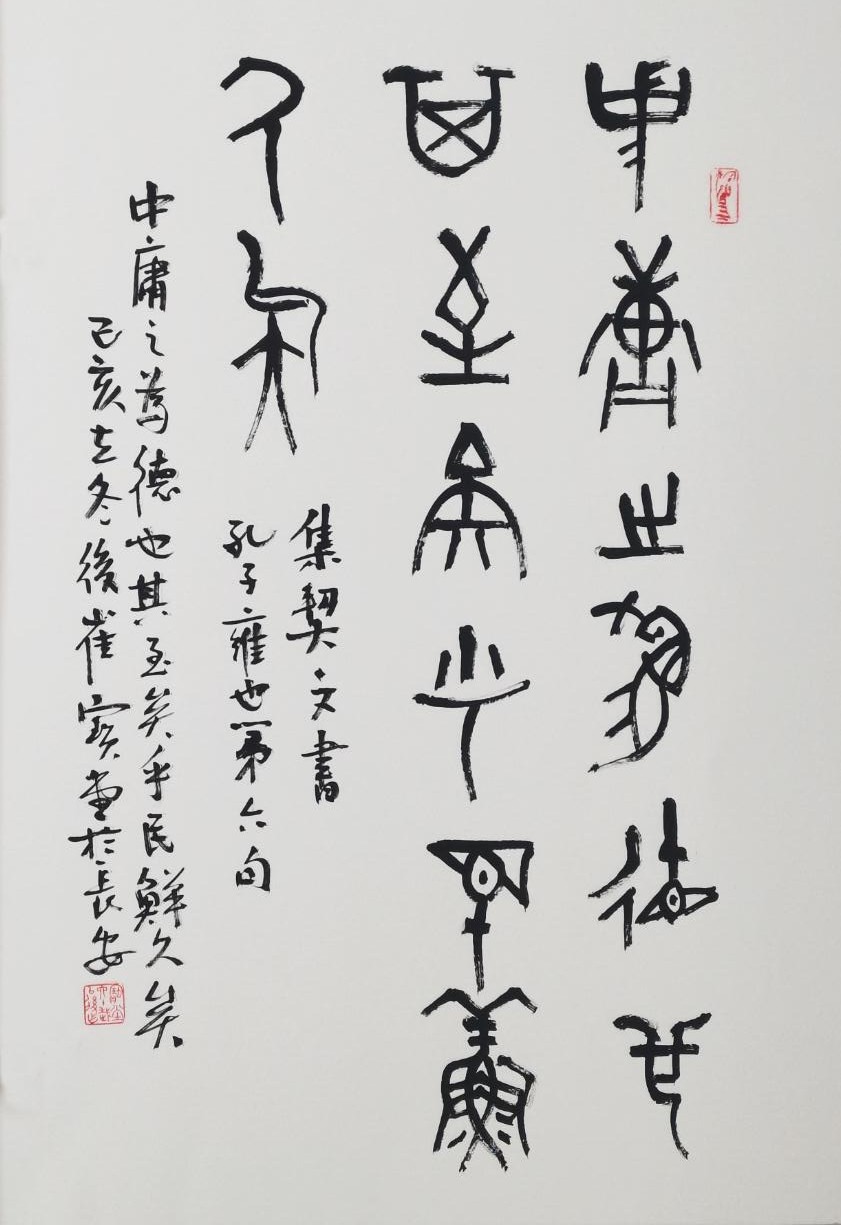 中庸之為德也
其至矣乎民鮮
久矣
集契文書
孔子雍也第六句
中庸之為德也其至矣乎民鮮久矣
己亥立冬後崔寶堂於長安